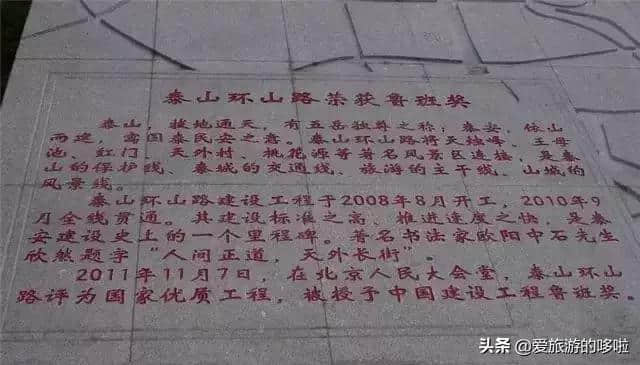 泰山环山路荣获鲁班奖
泰山,拔地通天,有五岳独尊之称;泰安,依山
而建,寓国泰民安之意。泰山环山路将天烛峰、王母
池、红门、天外村、桃花源等著名风景区连接,是泰
山的保护线、泰城的交通线、旅游的主干线、山城的
风景线。
泰山环山路建设工程于2008年8月开工,2010年9
月全线贯通。其建设标准之高、推进速度之快,是泰
安建设史上的一个里程碑。著名书法家欧阳中石先生
欣然题字“人间正道,天外长街”。
2011年11月7日,在北京人民大会堂,泰山环山
路评为国家优质工程,被授予中国建设工程鲁班奖。
头条 @爱旅游的哆啦